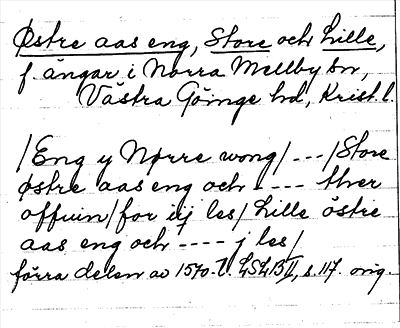 Østre aas eng, Store och Lille,
f. ängar i Norra Mellby sn,
Västra Göinge hd, Krist. l.
/Eng y Nørre wong/ --- /Store
østre aas eng och - --- thver
offuin/for uj les/ Lille östre
aas eng och ---- j les/
förra delen av 1570-t. LSLB II, s. 117. orig.